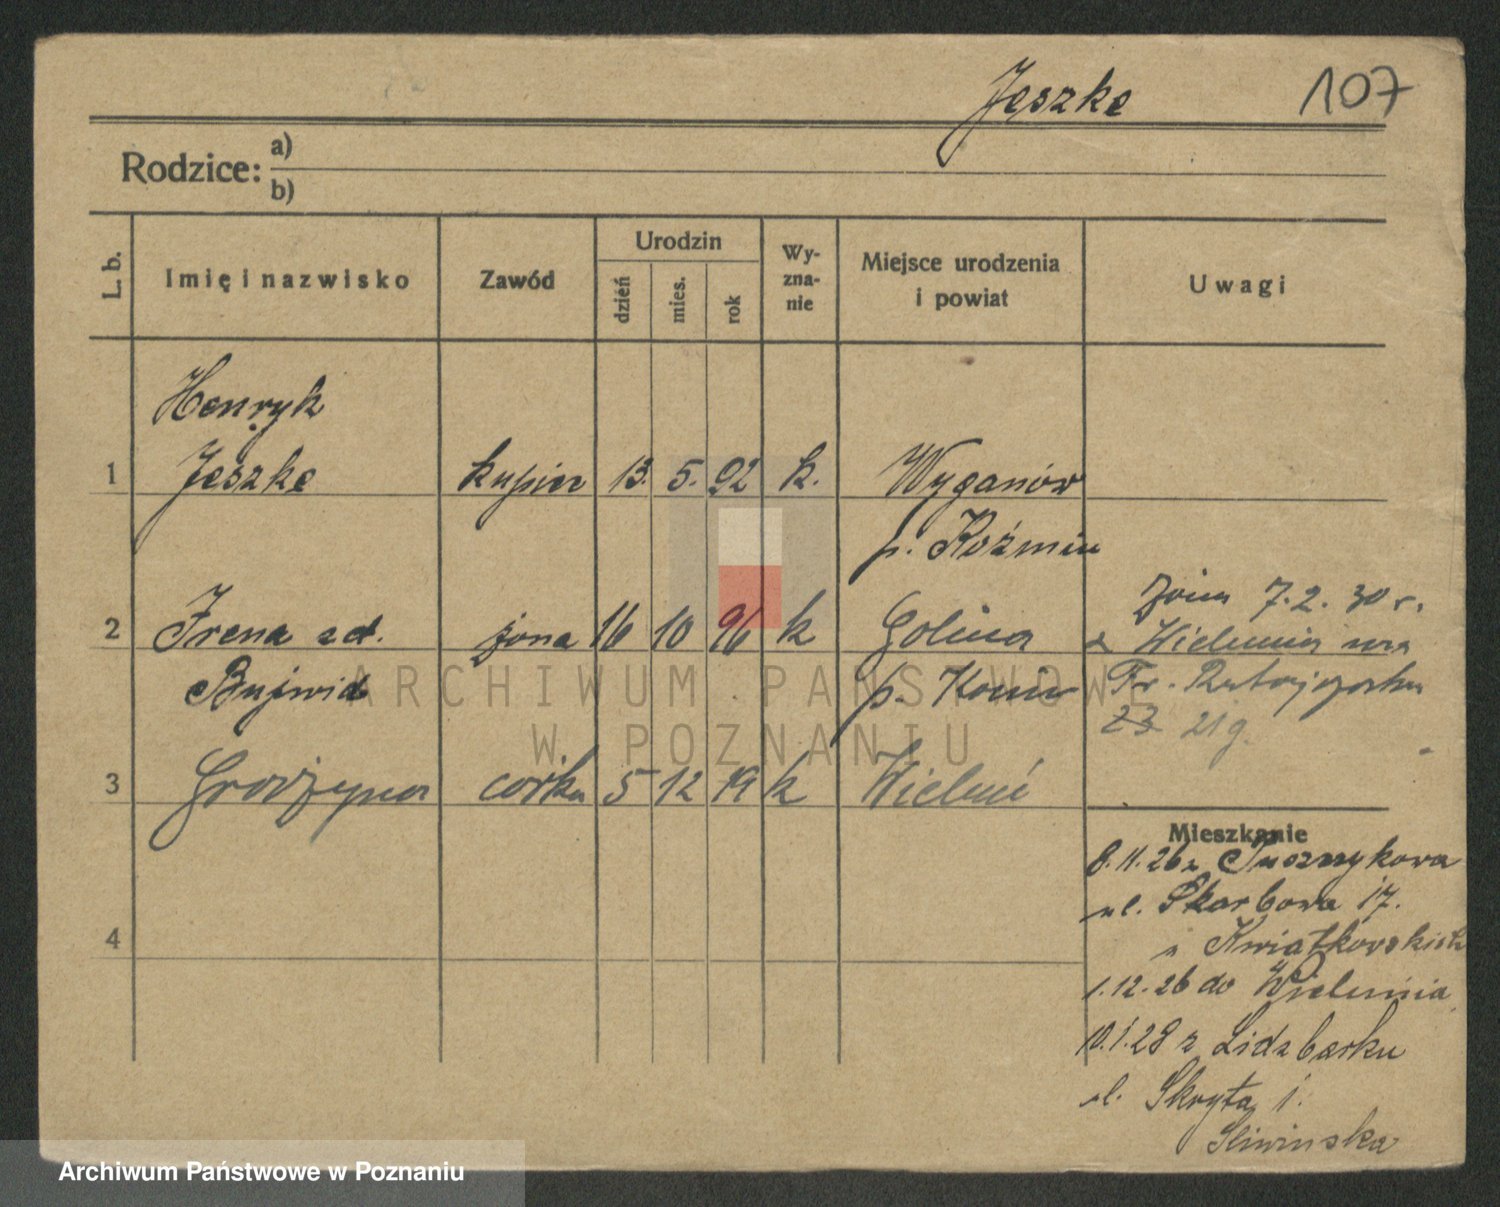 Jeszke 107
Rodzice: a)
b)
L. b. Imię i nazwisko Zawód Urodzin dzień mies. rok Wy-zna-nie Miejsce urodzenia i powiat Uwagi
Henryk
1 Jeszke kupiec 13. 5. 92 k. Wyganów
p. Koźmin
2 Irena zd. żona 16 10 96 k Golina
Bujwid p. Konin
żona 7.2.30 r.
z Wielunia na
Fr. Ratajczaka
23 21 g.
3 Grażyna córka 5 12 19 k Wieluń
4
Mieszkanie
8.11.26 z
ul. Skarbowa 17.
u Kwiatkowskich
1.12.26 do Wielunia
10.1.28 z Lidzbarku
ul. Skryta 1.
Sliwinska
ARCHIWUM PAŃSTWOWE
W POZNANIU
Archiwum Państwowe w Poznaniu